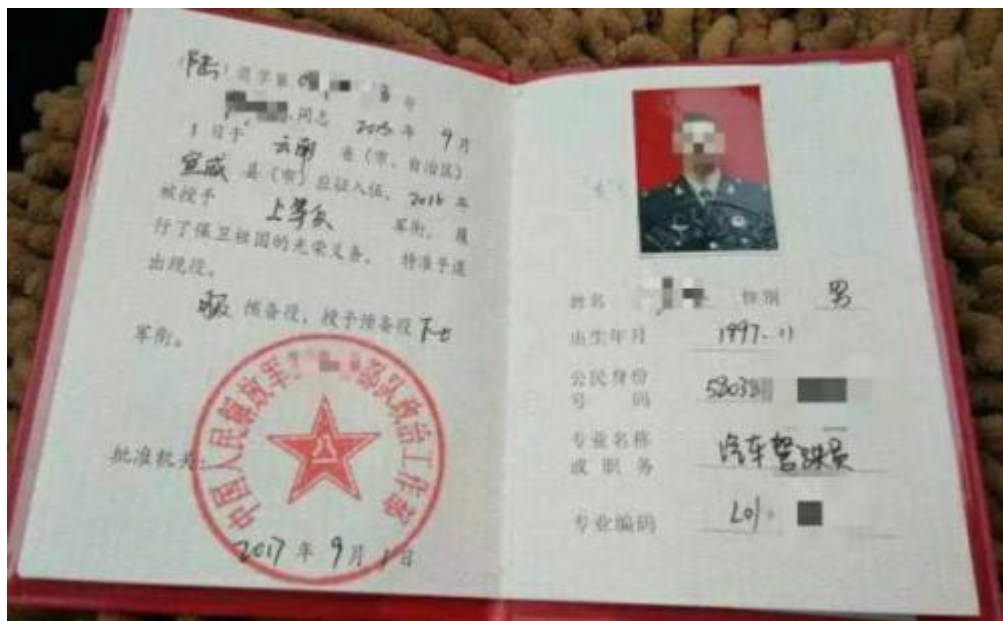 退字第 号
同志 2015 年 9 月
1 日于 云南 省（市、自治区）
宣威 县（市）应征入伍，2016 年
被授予 上等兵 军衔，履
行了保卫祖国的光荣义务，特准予退
出现役。
服 预备役，授予预备役 下士
军衔。
批准机关：
中国人民解放军 部队政治工作部
2017 年 9 月 1 日
姓名 性别 男
出生年月 1997.11
公民身份
号 码
专业名称 汽车驾驶员
或 职 务
专业编码